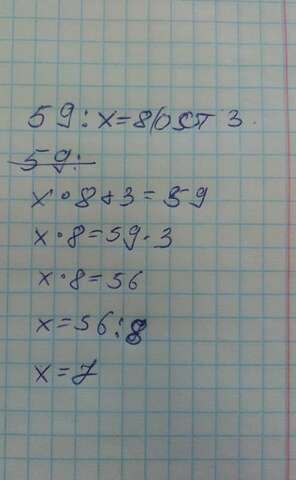 59:x=8(ост 3.
59:
x·8+3=59
x·8=59-3
x·8=56
x=56:8
x=7